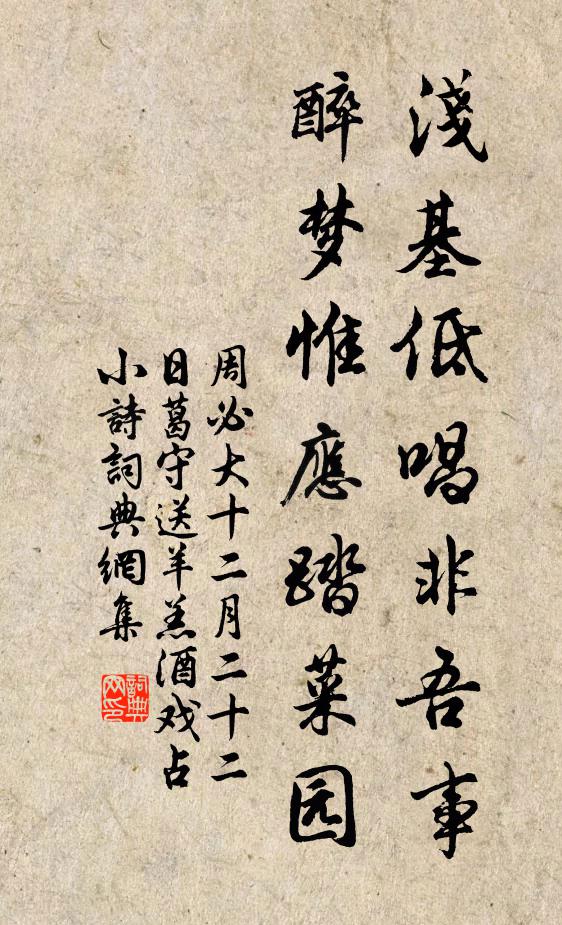 淺基低唱非吾事
醉梦惟應踏菜园
周必大十二月二十二
日葛守送羊羔酒戏占
小詩詞典網集
詞典
网印